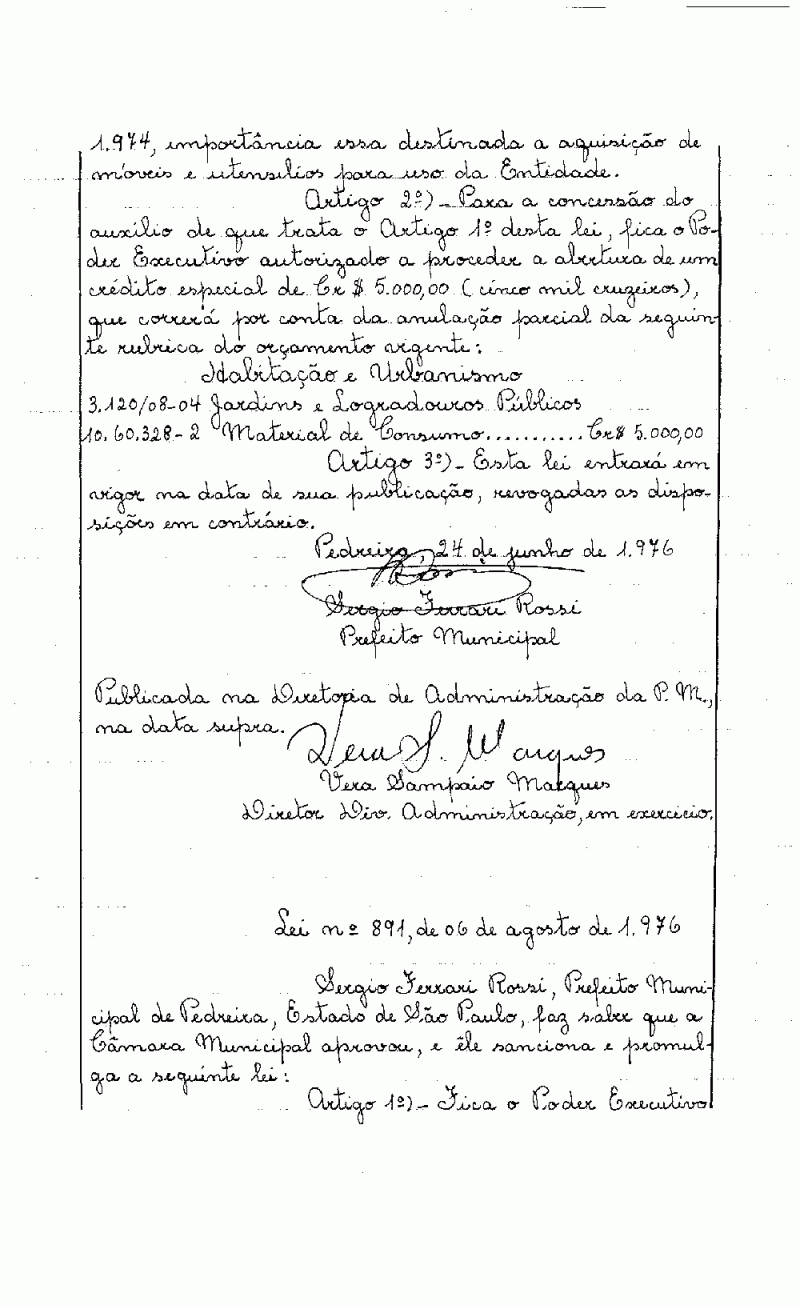 1.974, importância essa destinada a aquisição de
móveis e utensilios para uso da Entidade.
Artigo 2º) - Para a concessão do
auxílio de que trata o Artigo 1º desta lei, fica o Po-
der Executivo autorizado a proceder a abertura de um
crédito especial de Cr $ 5.000,00 (cinco mil cruzeiros),
que correrá por conta da anulação parcial da seguin-
te rubrica do orçamento vigente:
Habitação e Urbanismo
3.120/08-04 Jardins e Logradouros Públicos
10.60.328-2 Material de Consumo........... Cr$ 5.000,00
Artigo 3º) - Esta lei entrará em
vigor na data de sua publicação, revogadas as dispo-
sições em contrário.
Pedreira, 24 de junho de 1.976
Rossi
Sergio Ferrari Rossi
Prefeito Municipal
Publicada na Diretoria de Administração da P. M.,
na data supra.
Vera S. Marques
Vera Sampaio Marques
Diretor Div. Administração, em exercicio.
Lei nº 891, de 06 de agosto de 1.976
Sergio Ferrari Rossi, Prefeito Muni-
cipal de Pedreira, Estado de São Paulo, faz saber que a
Câmara Municipal aprovou, e êle sanciona e promul-
ga a seguinte lei:
Artigo 1º) - Fica o Poder Executivo